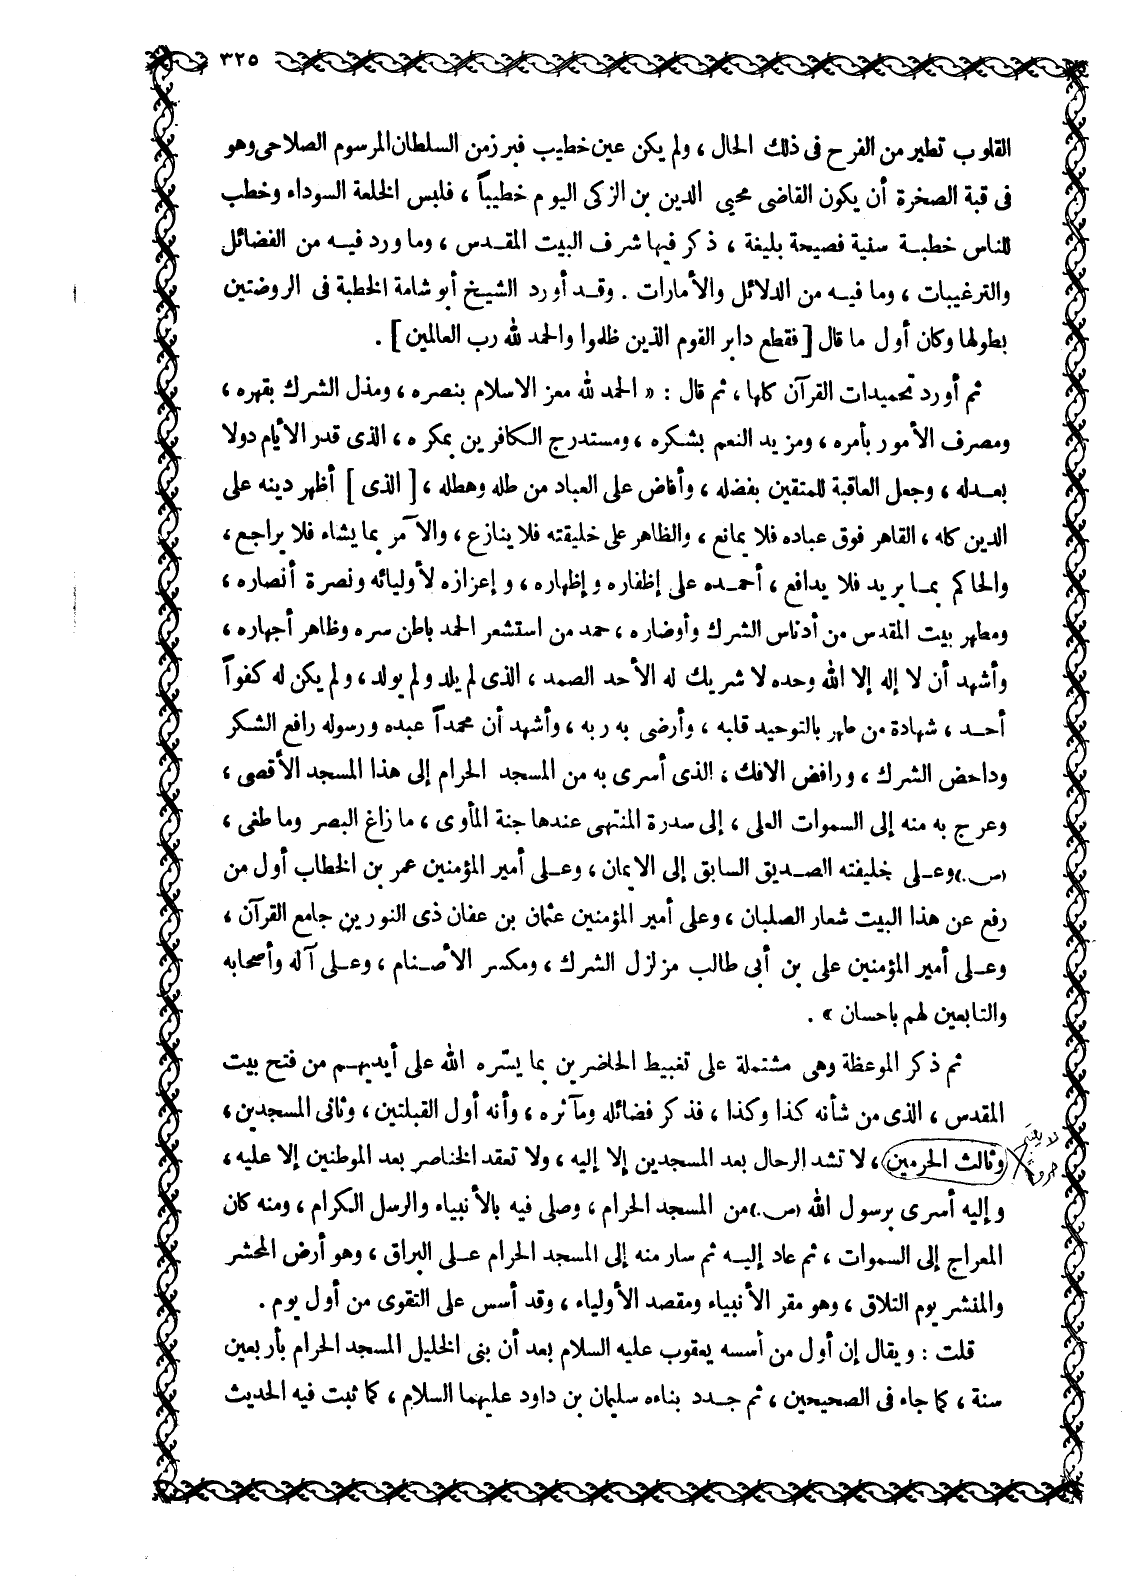 ٣٢٥
القلوب تطير من الفرح فى ذلك الحال ، ولم يكن عين خطيب فبرز من السلطان المرسوم الصلاحى وهو
فى قبة الصخرة أن يكون القاضى محيى الدين بن الزكى اليوم خطيباً ، فلبس الخلعة السوداء وخطب
للناس خطبة سنية فصيحة بليغة ، ذكر فيها شرف البيت المقدس ، وما ورد فيه من الفضائل
والترغيبات ، وما فيه من الدلائل والأمارات . وقد أورد الشيخ أبو شامة الخطبة فى الروضتين
بطولها وكان أول ما قال [ فقطع دابر القوم الذين ظلموا والحمد لله رب العالمين ] .
ثم أورد تحميدات القرآن كلها ، ثم قال : « الحمد لله معز الاسلام بنصره ، ومذل الشرك بقهره ،
ومصرف الأمور بأمره ، ومزيد النعم بشكره ، ومستدرج الكافرين بمكره ، الذى قدر الأيام دولا
بعدله ، وجعل العاقبة للمتقين بفضله ، وأفاض على العباد من طله وهطله ، [ الذى ] أظهر دينه على
الدين كله ، القاهر فوق عباده فلا يمانع ، والظاهر على خليقته فلا ينازع ، والآمر بما يشاء فلا يراجع ،
والحاكم بما يريد فلا يدافع ، أحمده على إظفاره وإظهاره ، وإعزازه لأوليائه ونصرة أنصاره ،
ومطهر بيت المقدس من أدناس الشرك وأوضاره ، حمد من استشعر الحمد باطن سره وظاهر أجهاره ،
وأشهد أن لا إله إلا الله وحده لا شريك له الأحد الصمد ، الذى لم يلد ولم يولد ، ولم يكن له كفواً
أحد ، شهادة من طهر بالتوحيد قلبه ، وأرضى به ربه ، وأشهد أن محمداً عبده ورسوله رافع الشكر
وداحض الشرك ، ورافض الافك ، الذى أسرى به من المسجد الحرام إلى هذا المسجد الأقصى ،
وعرج به منه إلى السموات العلى ، إلى سدرة المنتهى عندها جنة المأوى ، ما زاغ البصر وما طغى ،
(ص) وعلى خليفته الصديق السابق إلى الايمان ، وعلى أمير المؤمنين عمر بن الخطاب أول من
رفع عن هذا البيت شعار الصلبان ، وعلى أمير المؤمنين عثمان بن عفان ذى النورين جامع القرآن ،
وعلى أمير المؤمنين على بن أبى طالب مزلزل الشرك ، ومكسر الأصنام ، وعلى آله وأصحابه
والتابعين لهم باحسان » .
ثم ذكر الموعظة وهى مشتملة على تغبيط الحاضرين بما يسّره الله على أيديهم من فتح بيت
المقدس ، الذى من شأنه كذا وكذا ، فذكر فضائله ومآثره ، وأنه أول القبلتين ، وثانى المسجدين ،
وثالث الحرمين ، لا تشد الرحال بعد المسجدين إلا إليه ، ولا تعقد الخناصر بعد الموطنين إلا عليه ،
وإليه أسرى برسول الله (ص) من المسجد الحرام ، وصلى فيه بالأنبياء والرسل الكرام ، ومنه كان
المعراج إلى السموات ، ثم عاد إليه ثم سار منه إلى المسجد الحرام على البراق ، وهو أرض المحشر
والمنشر يوم التلاق ، وهو مقر الأنبياء ومقصد الأولياء ، وقد أسس على التقوى من أول يوم .
قلت : ويقال إن أول من أسسه يعقوب عليه السلام بعد أن بنى الخليل المسجد الحرام بأربعين
سنة ، كما جاء فى الصحيحين ، ثم جدد بناءه سليمان بن داود عليهما السلام ، كما ثبت فيه الحديث